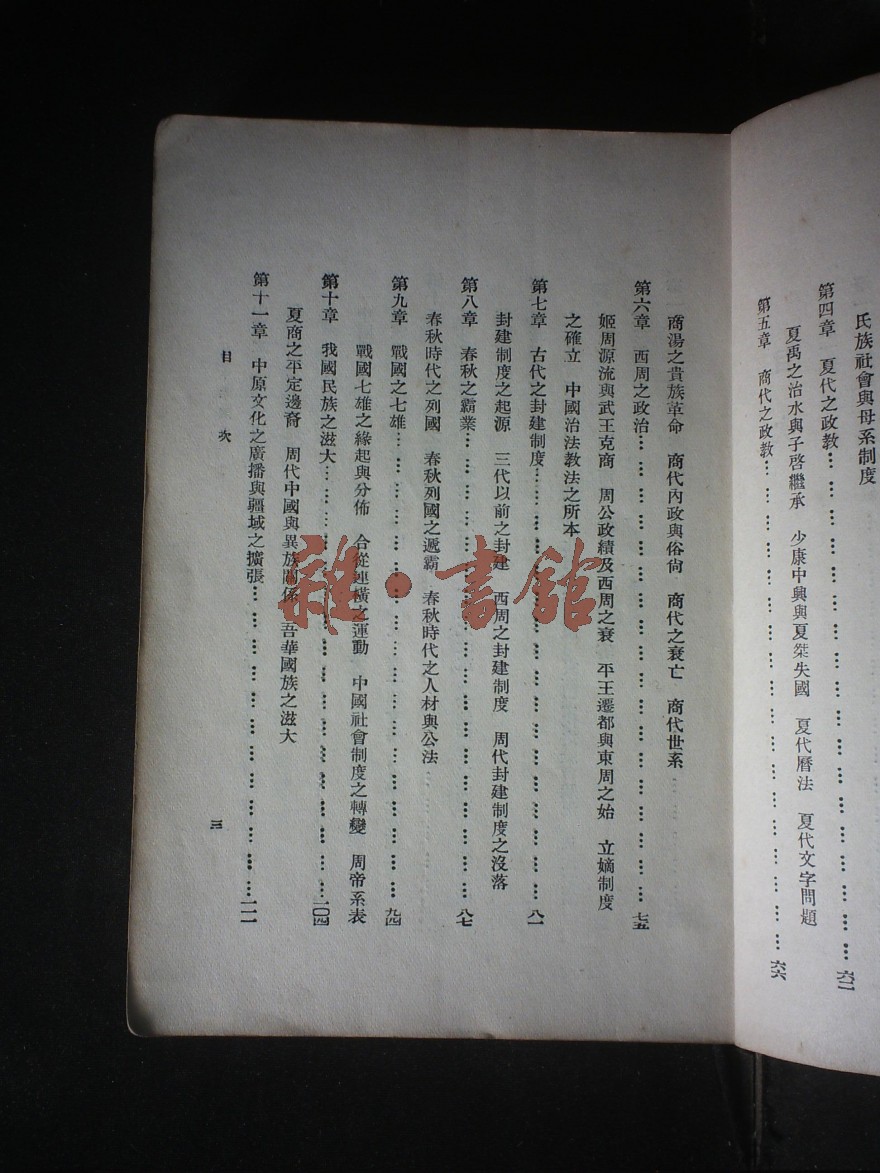 氏族社會與母系制度
第四章　夏代之政教………………………………………六二
夏禹之治水與子啓繼承　少康中興與夏桀失國　夏代曆法　夏代文字問題
第五章　商代之政教………………………………………六六
商湯之貴族革命　商代內政與俗尙　商代之衰亡　商代世系
第六章　西周之政治………………………………………七五
姬周源流與武王克商　周公政績及西周之衰　平王遷都與東周之始　立嫡制度
之確立　中國治法教法之所本
第七章　古代之封建制度………………………………………八一
封建制度之起源　三代以前之封建　西周之封建制度　周代封建制度之沒落
第八章　春秋之霸業………………………………………八七
春秋時代之列國　春秋列國之遞霸　春秋時代之人材與公法
第九章　戰國之七雄………………………………………九四
戰國七雄之緣起與分佈　合從連橫之運動　中國社會制度之轉變　周帝系表
第十章　我國民族之滋大………………………………………一〇四
夏商之平定邊裔　周代中國與異族關係　吾華國族之滋大
第十一章　中原文化之廣播與疆域之擴張………………………………………一一一
目次
三
雜·書館